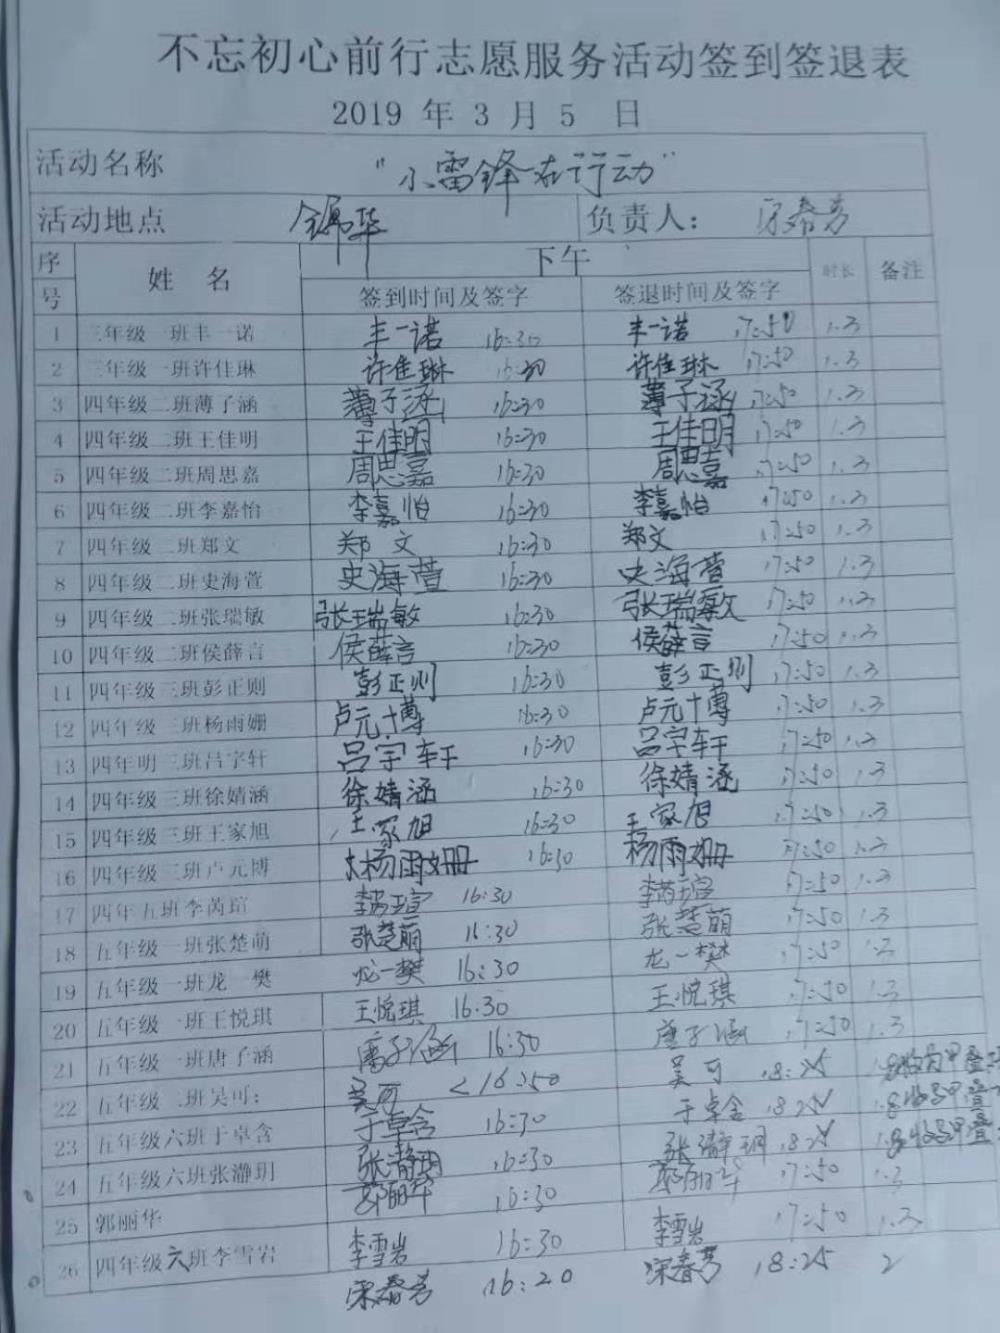 不忘初心前行志愿服务活动签到签退表
2019 年 3 月 5 日
活动名称 "小雷锋在行动"
活动地点 锦华 负责人： 宋春芳
序号 姓 名 下午 时长 备注
签到时间及签字 签退时间及签字
1 三年级一班丰一诺 丰一诺 16:30 丰一诺 17:50 1.3
2 三年级一班许佳琳 许佳琳 16:30 许佳琳 17:50 1.3
3 四年级二班薄子涵 薄子涵 16:30 薄子涵 17:50 1.3
4 四年级二班王佳明 王佳明 16:30 王佳明 17:50 1.3
5 四年级二班周思嘉 周思嘉 16:30 周思嘉 17:50 1.3
6 四年级二班李嘉怡 李嘉怡 16:30 李嘉怡 17:50 1.3
7 四年级二班郑文 郑文 16:30 郑文 17:50 1.3
8 四年级二班史海萱 史海萱 16:30 史海萱 17:50 1.3
9 四年级二班张瑞敏 张瑞敏 16:30 张瑞敏 17:50 1.3
10 四年级二班侯薛言 侯薛言 16:30 侯薛言 17:50 1.3
11 四年级三班彭正则 彭正则 16:30 彭正则 17:50 1.3
12 四年级三班杨雨姗 卢元博 16:30 卢元博 17:50 1.3
13 四年明三班吕字轩 吕宇轩 16:30 吕宇轩 17:50 1.3
14 四年级三班徐婧涵 徐婧涵 16:30 徐婧涵 17:50 1.3
15 四年级三班王家旭 王家旭 16:30 王家旭 17:50 1.3
16 四年级三班卢元博 杨雨姗 16:30 杨雨姗 17:50 1.3
17 四年五班李芮瑄 李芮瑄 16:30 李芮瑄 17:50 1.3
18 五年级一班张楚萌 张楚萌 16:30 张楚萌 17:50 1.3
19 五年级一班龙一樊 龙一樊 16:30 龙一樊 17:50 1.3
20 五年级一班王悦琪 王悦琪 16:30 王悦琪 17:50 1.3
21 五年级一班唐子涵 唐子涵 16:30 唐子涵 17:50 1.3
22 五年级二班吴可； 吴可 16:50 吴可 18:25 1.8
23 五年级六班于卓含 于卓含 16:30 于卓含 18:25 1.8
24 五年级六班张瀞玥 张瀞玥 16:30 张瀞玥 18:25 1.8
25 郭丽华 郭丽华 16:30 郭丽华 17:50 1.3
26 四年级六班李雪岩 李雪岩 16:30 李雪岩 17:50 1.3
宋春芳 16:20 宋春芳 18:25 2